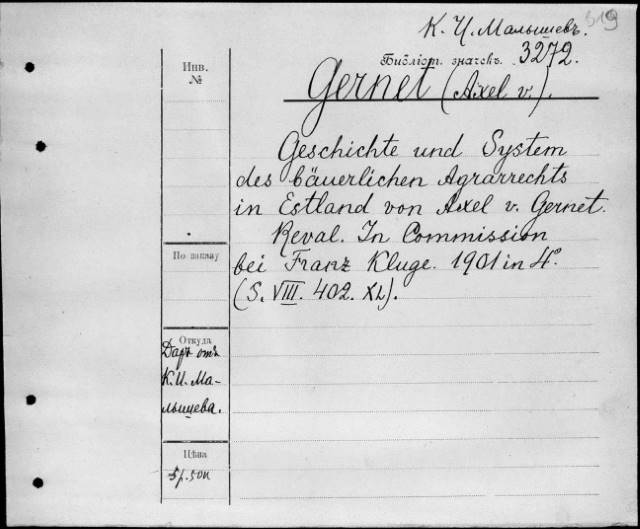 319
К. И. Малышевъ.
Библіот. значекъ. 3272.
Инв.
№
Gernet (Axel v.).
Geschichte und System
des bäuerlichen Agrarrechts
in Estland von Axel v. Gernet.
Reval. In Commission
bei Franz Kluge. 1901 in 4°.
(S. VIII. 402. XL).
По каталогу
Откуда
Даръ отъ
К. И. Ма-
лышева.
Цѣна
5р. 50к